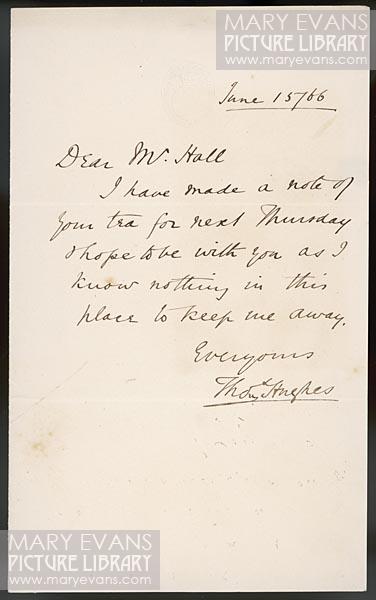 MARY EVANS
PICTURE LIBRARY
www.maryevans.com
June 15/66
Dear Mr. Hall
I have made a note of
your tea for next Thursday
& hope to be with you as I
know nothing in this
place to keep me away.
Ever yours
Thos Hughes
MARY EVANS
PICTURE LIBRARY
www.maryevans.com